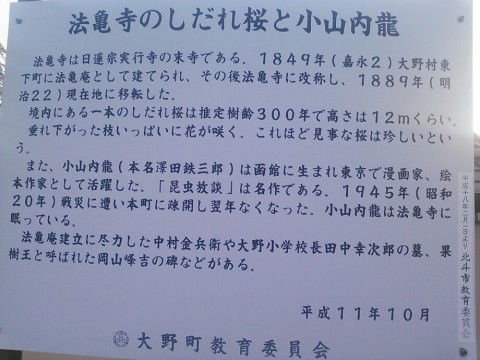 法亀寺のしだれ桜と小山内龍
法亀寺は日蓮宗実行寺の末寺である。1849年(嘉永2)大野村東
下町に法亀庵として建てられ、その後法亀寺に改称し、1889年(明
治22)現在地に移転した。
境内にある一本のしだれ桜は推定樹齢300年で高さは12mくらい。
垂れ下がった枝いっぱいに花が咲く。これほど見事な桜は珍しいとい
う。
また、小山内龍(本名澤田鉄三郎)は函館に生まれ東京で漫画家、絵
本作家として活躍した。「昆虫放談」は名作である。1945年(昭和
20年)戦災に遭い本町に疎開し翌年なくなった。小山内龍は法亀寺に
眠っている。
法亀庵建立に尽力した中村金兵衛や大野小学校長田中幸次郎の墓、果
樹王と呼ばれた岡山峰吉の碑などがある。
平成11年10月
大野町教育委員会
平成十八年二月一日より 北斗市教育委員会